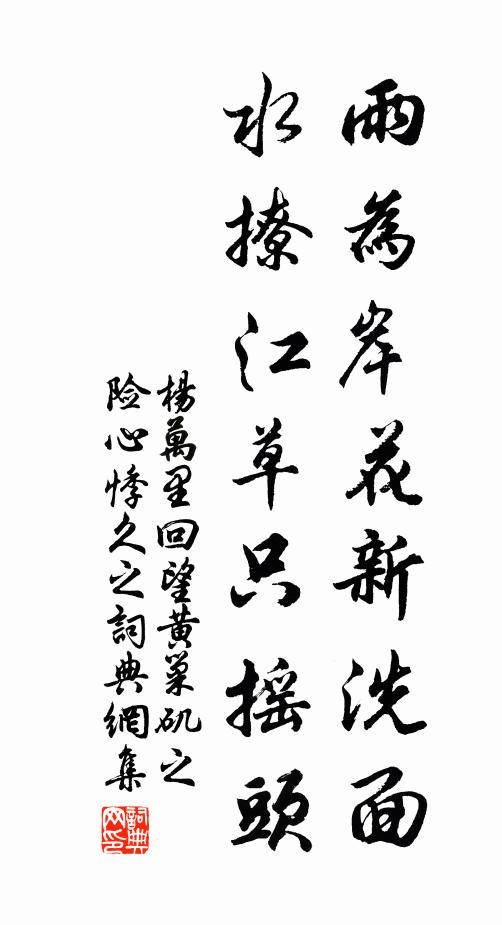 雨為岸花新洗面
水撩江草只摇頭
楊萬里回望黄巢矶之
险心悸久之詞典網集
詞典
网印